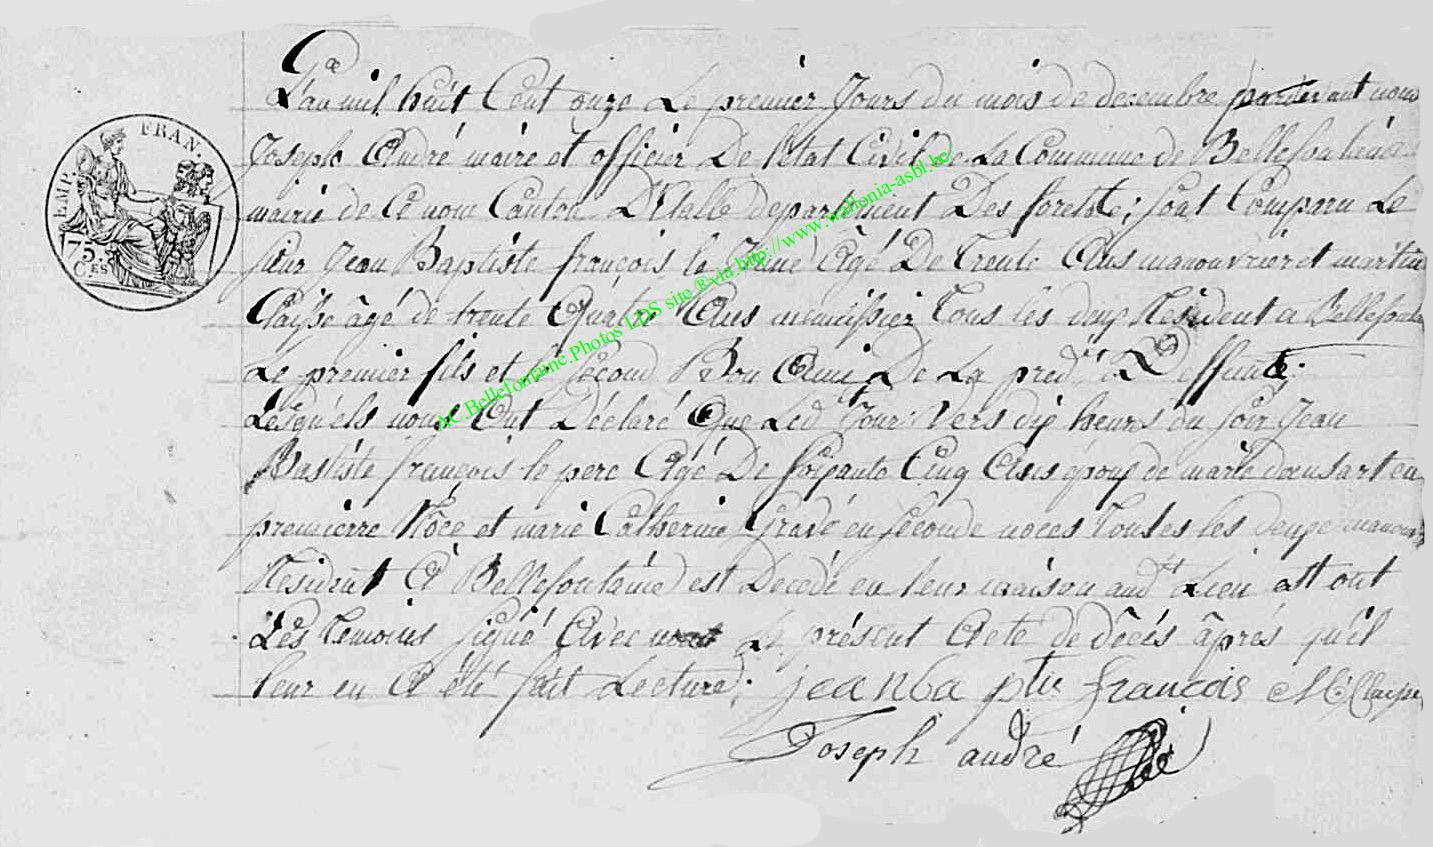 L'an mil huit Cent onze Le premier Jours du mois de decembre pardevant nous
Joseph André maire et officier De l'Etat Civil de La Commune de Bellefontaine
mairie de Ce nom Canton D'Etalle departement Des forets; sont Comparu Le
sieur Jean Baptiste françois le Jeune Agé De Trente Ans manouvrier et martin
Claisse âgé de trente Quatre Ans menuissier Tous les deux Résident a Bellefontaine
Le premier fils et le second Bon Ami De La predte Deffunte.
Lesquels nous Ont Déclaré Que Led Jour Vers dix heures du soir Jean
Bastiste françois le pere Agé De soixante Cinq Ans epoux de marie dansart en
premierre Nôce et marie Catherine Gravé en seconde noces Toutes les deuxe
Résident A Bellefontaine est Decedé en leur maison audt Lieu ett ont
Les Temoins signé Avec nous Le présent Acte de décés âprés qu'il
leur en A été fait Lecture;
jean ba ptis francois M Claisse
Joseph andré
EMP. FRAN.
75.
C.ES
AC Bellefontaine.Photos LDS site ® via http://www.wallonia-asbl.be